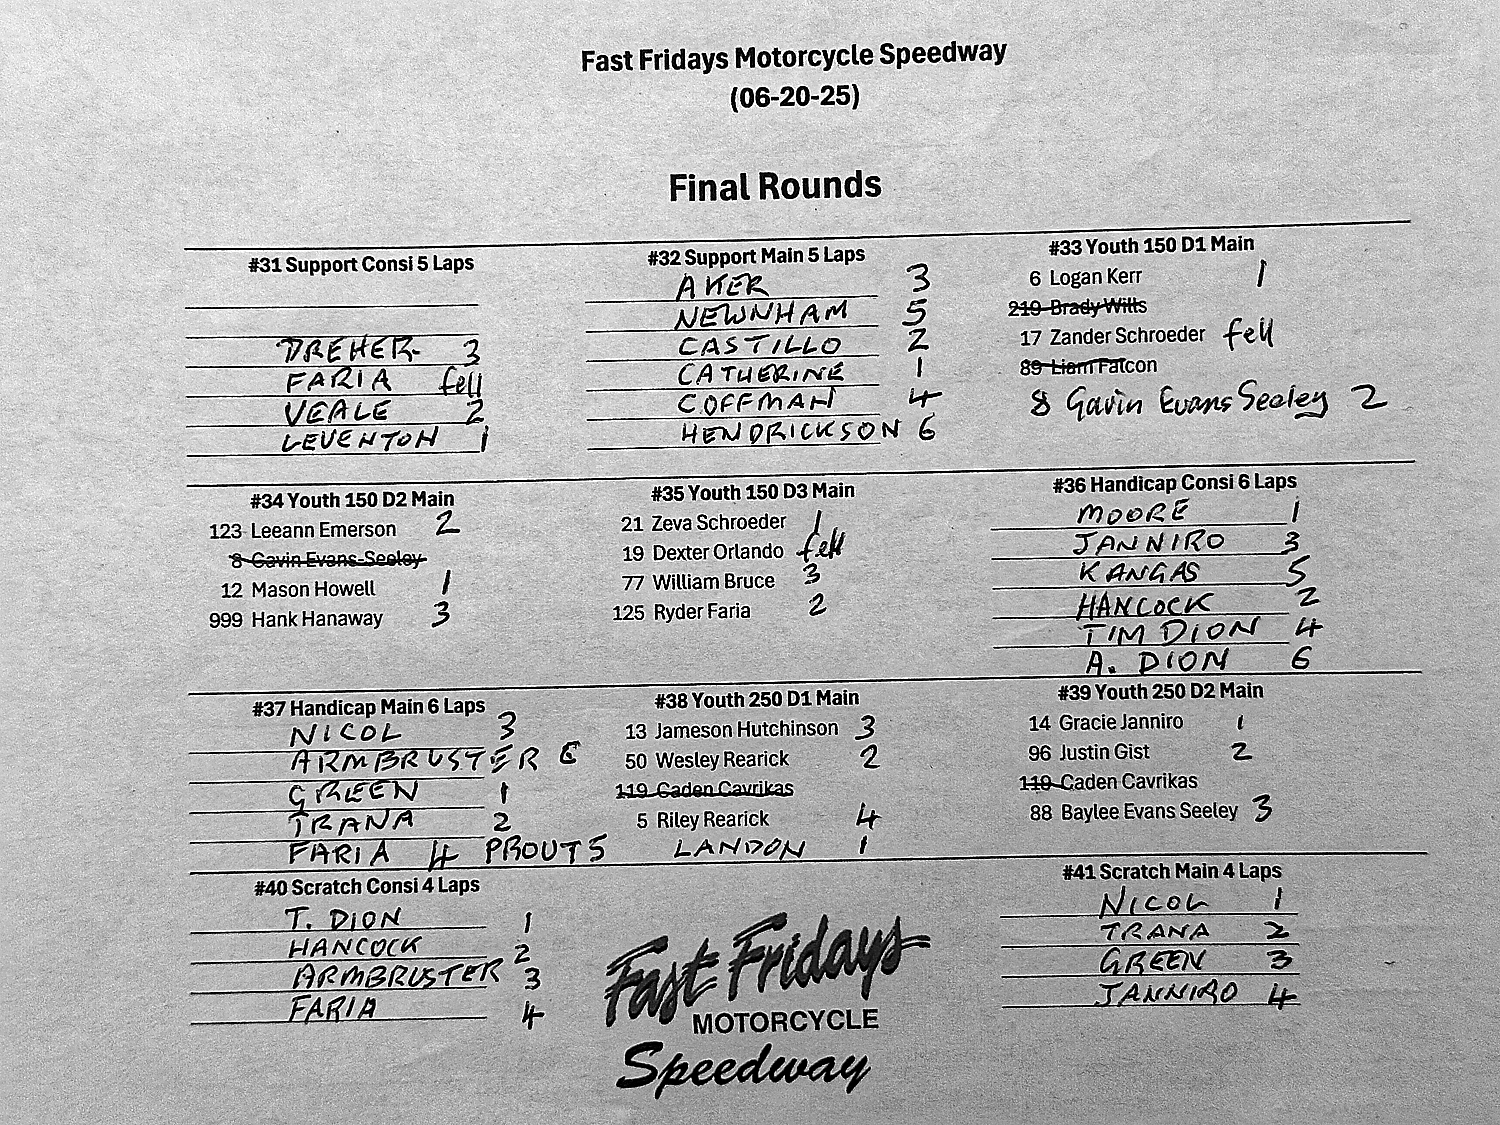 Fast Fridays Motorcycle Speedway
(06-20-25)
Final Rounds
#31 Support Consi 5 Laps
DREHER 3
FARIA fell
VEALE 2
LEVENTON 1
#32 Support Main 5 Laps
AKER 3
NEWNHAM 5
CASTILLO 2
CATHERINE 1
COFFMAN 4
HENDRICKSON 6
#33 Youth 150 D1 Main
6 Logan Kerr 1
219 Brady Wilts
17 Zander Schroeder fell
89 Liam Fatcon
8 Gavin Evans Seeley 2
#34 Youth 150 D2 Main
123 Leeann Emerson 2
8 Gavin Evans-Seeley
12 Mason Howell 1
999 Hank Hanaway 3
#35 Youth 150 D3 Main
21 Zeva Schroeder 1
19 Dexter Orlando fell
77 William Bruce 3
125 Ryder Faria 2
#36 Handicap Consi 6 Laps
MOORE 1
JANNIRO 3
KANGAS 5
HANCOCK 2
TIM DION 4
A. DION 6
#37 Handicap Main 6 Laps
NICOL 3
ARMBRUSTER 6
GREEN 1
TRANA 2
FARIA 4 PROUT 5
#38 Youth 250 D1 Main
13 Jameson Hutchinson 3
50 Wesley Rearick 2
119 Caden Cavrikas
5 Riley Rearick 4
LANDON 1
#39 Youth 250 D2 Main
14 Gracie Janniro 1
96 Justin Gist 2
119 Caden Cavrikas
88 Baylee Evans Seeley 3
#40 Scratch Consi 4 Laps
T. DION 1
HANCOCK 2
ARMBRUSTER 3
FARIA 4
Fast Fridays
MOTORCYCLE
Speedway
#41 Scratch Main 4 Laps
NICOL 1
TRANA 2
GREEN 3
JANNIRO 4